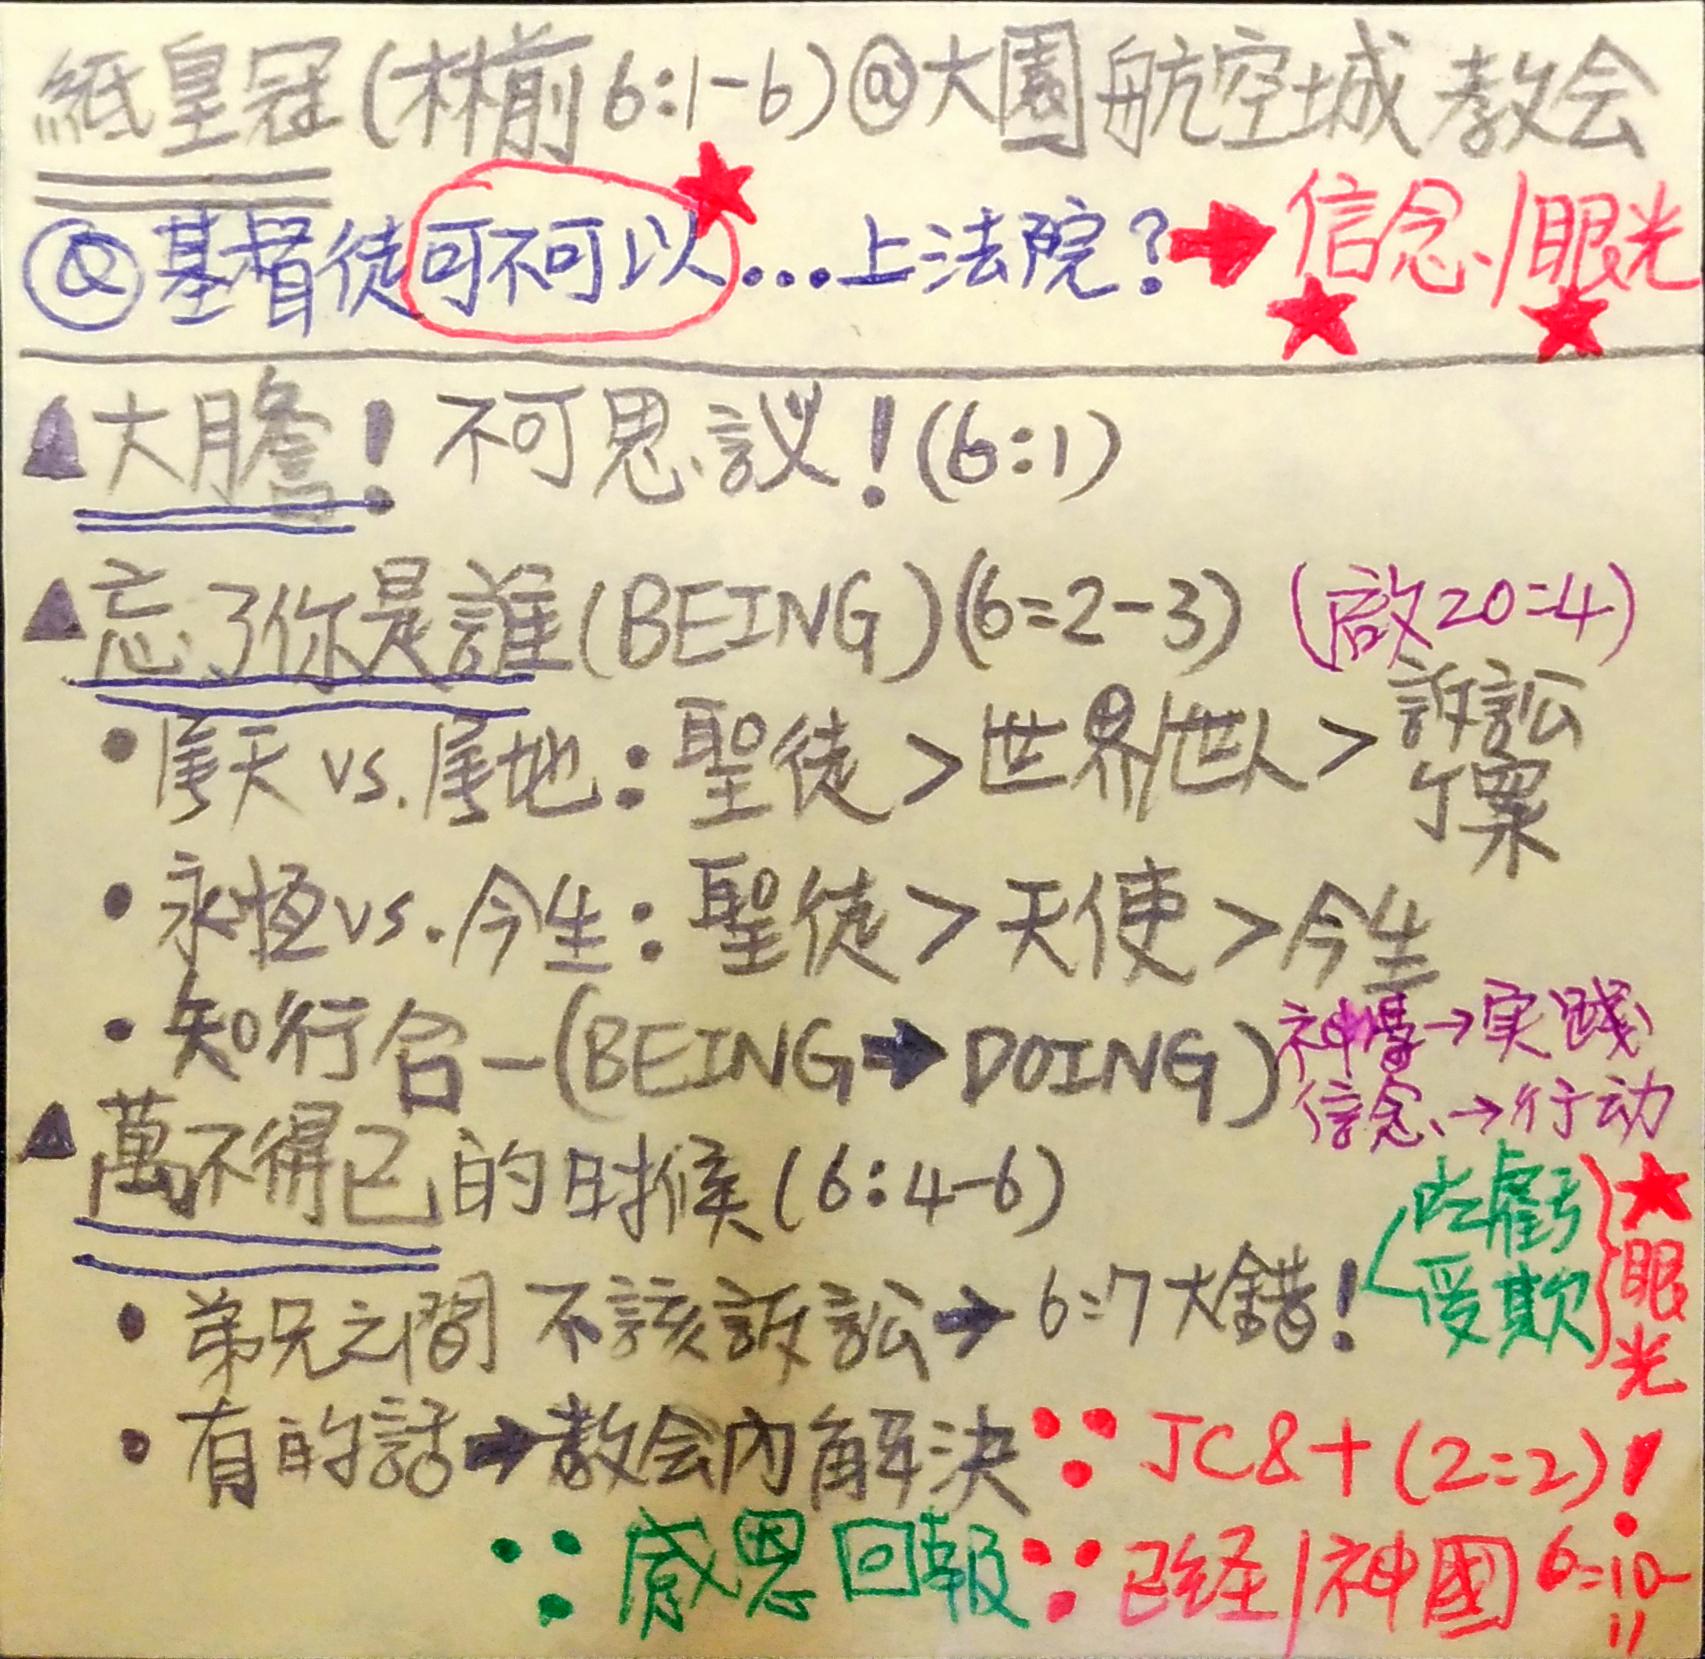 紙皇冠(林前6:1-6)@大園航空城教会
Q基督徒可不可以...上法院?➡信念/眼光
▲大膽!不可思議!(6:1)
▲忘了你是誰(BEING)(6:2-3) (啟20:4)
•屬天 vs. 屬地:聖徒>世界/世人>訴訟
个案
•永恆 vs. 今生:聖徒>天使>今生
•知行合一(BEING➡DOING)
神學→実践
信念→行动
▲萬不得已的时候(6:4-6)
•弟兄之間不該訴訟➡6:7大錯!
吃虧
受欺
★眼光
•有的話➡教会內解決∵JC8+(2:2)!
∵感恩回報∵已経/神國6:10-
11